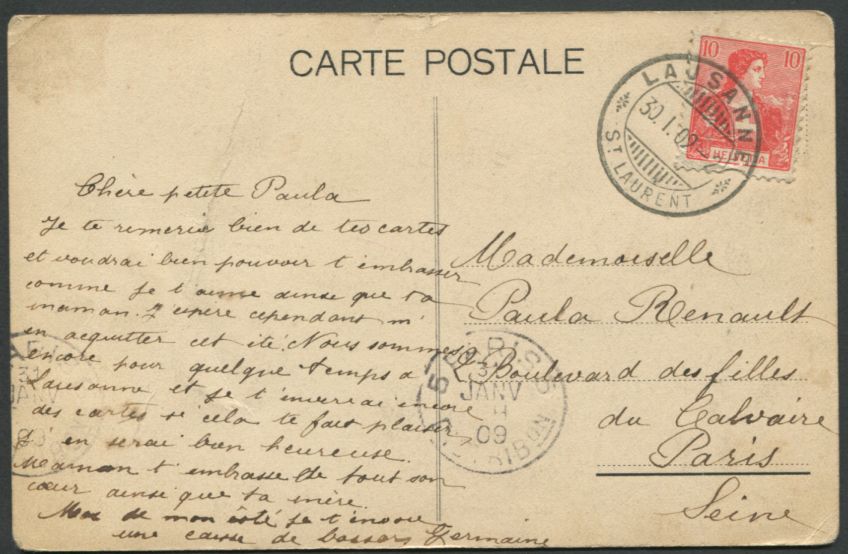 CARTE POSTALE
10 10
HELVETIA
LAUSANNE
30.I.09
ST LAURENT
Chère petite Paula
Je te remercie bien de tes cartes
et voudrai bien pouvoir t'embrasser
comme je t'aime ainsi que ta
maman. J'espère cependant m'
en acquitter cet été. Nous sommes
encore pour quelque temps a
Lausanne et je t'enverrai encore
des cartes si cela te fait plaisir,
J'en serai bien heureuse.
Maman t'embrasse de tout son
cœur ainsi que ta mère.
Moi de mon côté je t'envoie
une caisse de Germaine
Mademoiselle
Paula Renault
Boulevard des filles
du Calvaire
Paris
Seine
PARIS
31
JANV
09
31
JANV